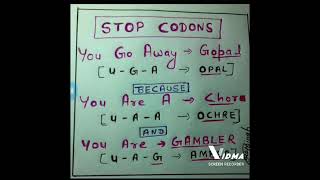 STOP CODONS
You Go Away → Gopal
[ U - G - A → OPAL ]
BECAUSE
You Are A → Chore
[ U - A - A → OCHRE ]
AND
You Are → GAMBLER
[ U - A - G →
VIDMA
SCREEN RECORDER